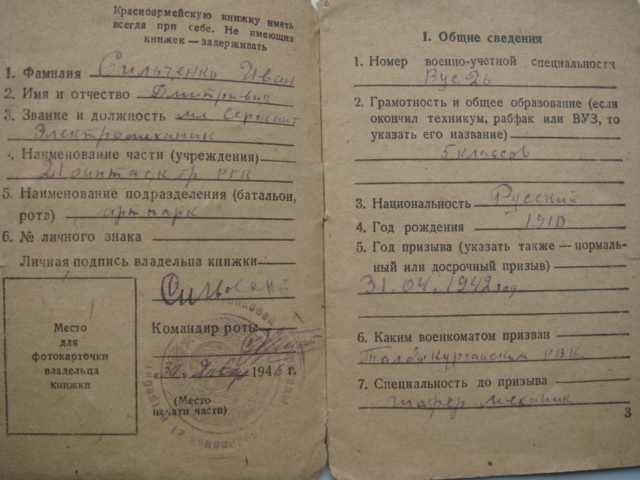 Красноармейскую книжку иметь
всегда при себе. Не имеющих
книжек — задерживать
1. Фамилия Сильченко Иван
2. Имя и отчество Дмитривич
3. Звание и должность мл сержант
Электромеханик
4. Наименование части (учреждения)
21 РГК
5. Наименование подразделения (батальон,
рота) артпарк
6. № личного знака
Личная подпись владельца книжки
Место
для
фотокарточки
владельца
книжки
Командир роты
30. Январ 1946 г.
(Место
печати части)
I. Общие сведения
1. Номер военно-учетной специальности
Вус 26
2. Грамотность и общее образование (если
окончил техникум, рабфак или ВУЗ, то
указать его название)
5 классов
3. Национальность Русский
4. Год рождения 1910
5. Год призыва (указать также — нормаль-
ный или досрочный призыв)
31.04.1942 год
6. Каким военкоматом призван
Талдыкурганским РВК
7. Специальность до призыва
шофер механик
3